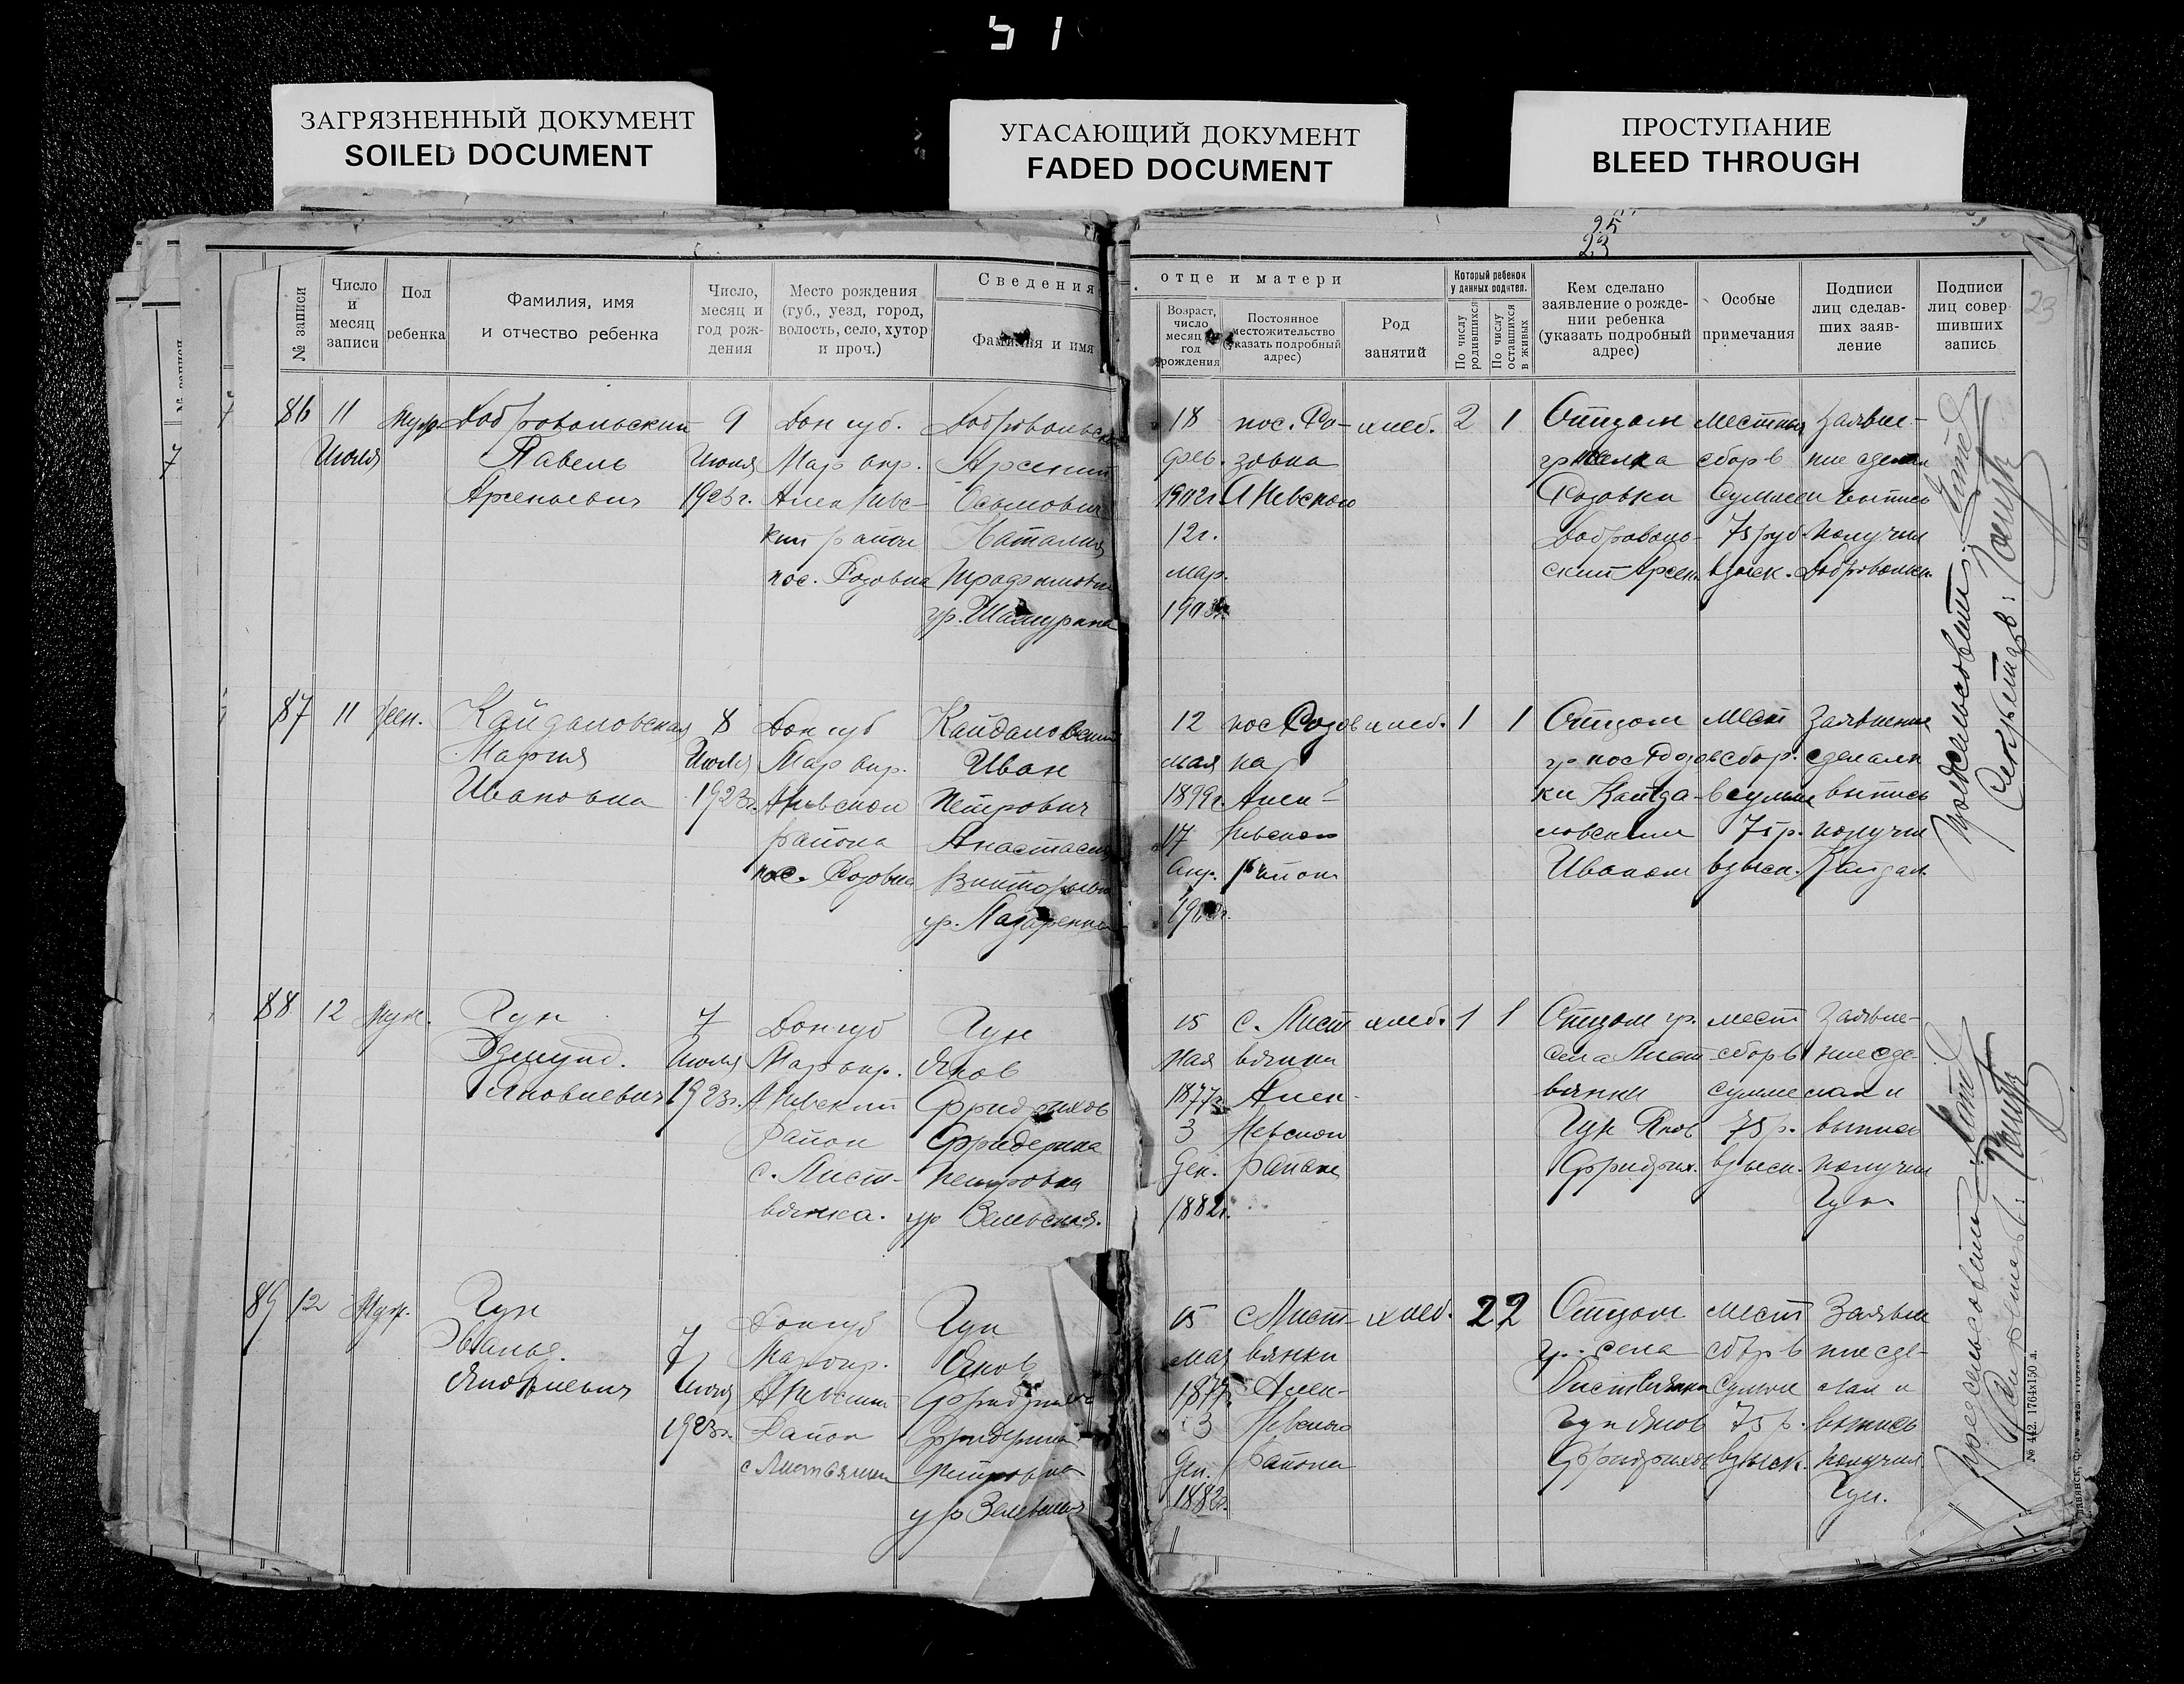 51
ЗАГРЯЗНЕННЫЙ ДОКУМЕНТ
SOILED DOCUMENT
УГАСАЮЩИЙ ДОКУМЕНТ
FADED DOCUMENT
ПРОСТУПАНИЕ
BLEED THROUGH
25
23
23
№ записи
Число
и
месяц
записи
Пол
ребенка
Фамилия, имя
и отчество ребенка
Число,
месяц и
год рож-
дения
Место рождения
(губ., уезд, город,
волость, село, хутор
и проч.)
Сведения
Фамилия и имя
отце и матери
Возраст,
число
месяц
год
рождения
Постоянное
местожительство
(указать подробный
адрес)
Род
занятий
Который ребенок
у данных родител.
По числу
родившихся
По числу
оставшихся
в живых
Кем сделано
заявление о рожде-
нии ребенка
(указать подробный
адрес)
Особые
примечания
Подписи
лиц сделав-
ших заяв-
ление
Подписи
лиц совер-
шивших
запись
86
11
Июля
Муж.
Добровольский
Павель
Арсеньевич
9
Июля
1923г.
Дон губ.
Мар окр.
Алек Невс-
кий район
пос. Розовка
Добровольский
Арсений
Осьмович
Наталия
Трофимовна
ур. Шамурина
18
фев.
1902г
12г.
мар.
пос. Ро-
зовка
А Невского
хлеб.
2
1
Отцом
гр поселка
Розовки
Доброволь-
ский Арсен.
местный
сбор в
сумме
75 руб.
взыск.
Заявле-
ние сделал
и выпись
получил
Добровольск.
87
11
жен.
Кайдаловская
Мария
Ивановна
8
Июля
1923г.
Дон губ
Мар окр.
А Невской
района
пос. Розовка
Кайдаловский
Иван
Петрович
Анастасия
ур. Назаренко
12
мая
1899г.
17
Апр.
пос Розов
ка
Алек-
Невского
район
хлеб.
1
1
Отцом
гр пос Розов
ки Кайда-
ловским
Иваном
мест
сбор.
в сумме
75 р.
взыск.
Заявление
сделал и
выпись
получил
Кайдал
88
12
Муж.
Гун
Эдмунд.
Яковлевич
7
Июля
1923г.
Дон губ
Мар окр.
А Невский
район
с. Лист-
вянка.
Гун
Яков
Фридрихов
Фридерика
Петровна
ур Зельская.
15
Мая
1877г.
3
Ген.
1882г.
с. Лист
вянки
Алек-
Невской
района
хлеб.
1
1
Отцом гр.
села Лист-
вянки
Гун Яков
Фридрих.
мест
сбор в
сумме
75 р.
взыск.
Заявле-
ние сде-
лал и
выпись
получил
Гун
89
12
Муж.
Гун
Эвальд.
Яковлевич
7
Июля
1923г.
Дон губ
Мар окр.
А Невский
Район
с Листвянка
Гун
Яков
Фридрихов
Фридерика
Петровна
ур Зельская
15
мая
1877г.
3
Ген.
1882г.
с Лист
вянки
Алек-
Невского
района
хлеб.
2
2
Отцом
гр. села
Листвянка
Гун Яков
Фридрихов
мест
сбор в
сумме
75 р.
взыск.
Заявле
ние сде-
лал и
выпись
получил
Гун.
Предсельсовета:
Секретарь:
Предсельсовета
Секретарь:
№ 442. 1764х150 л.